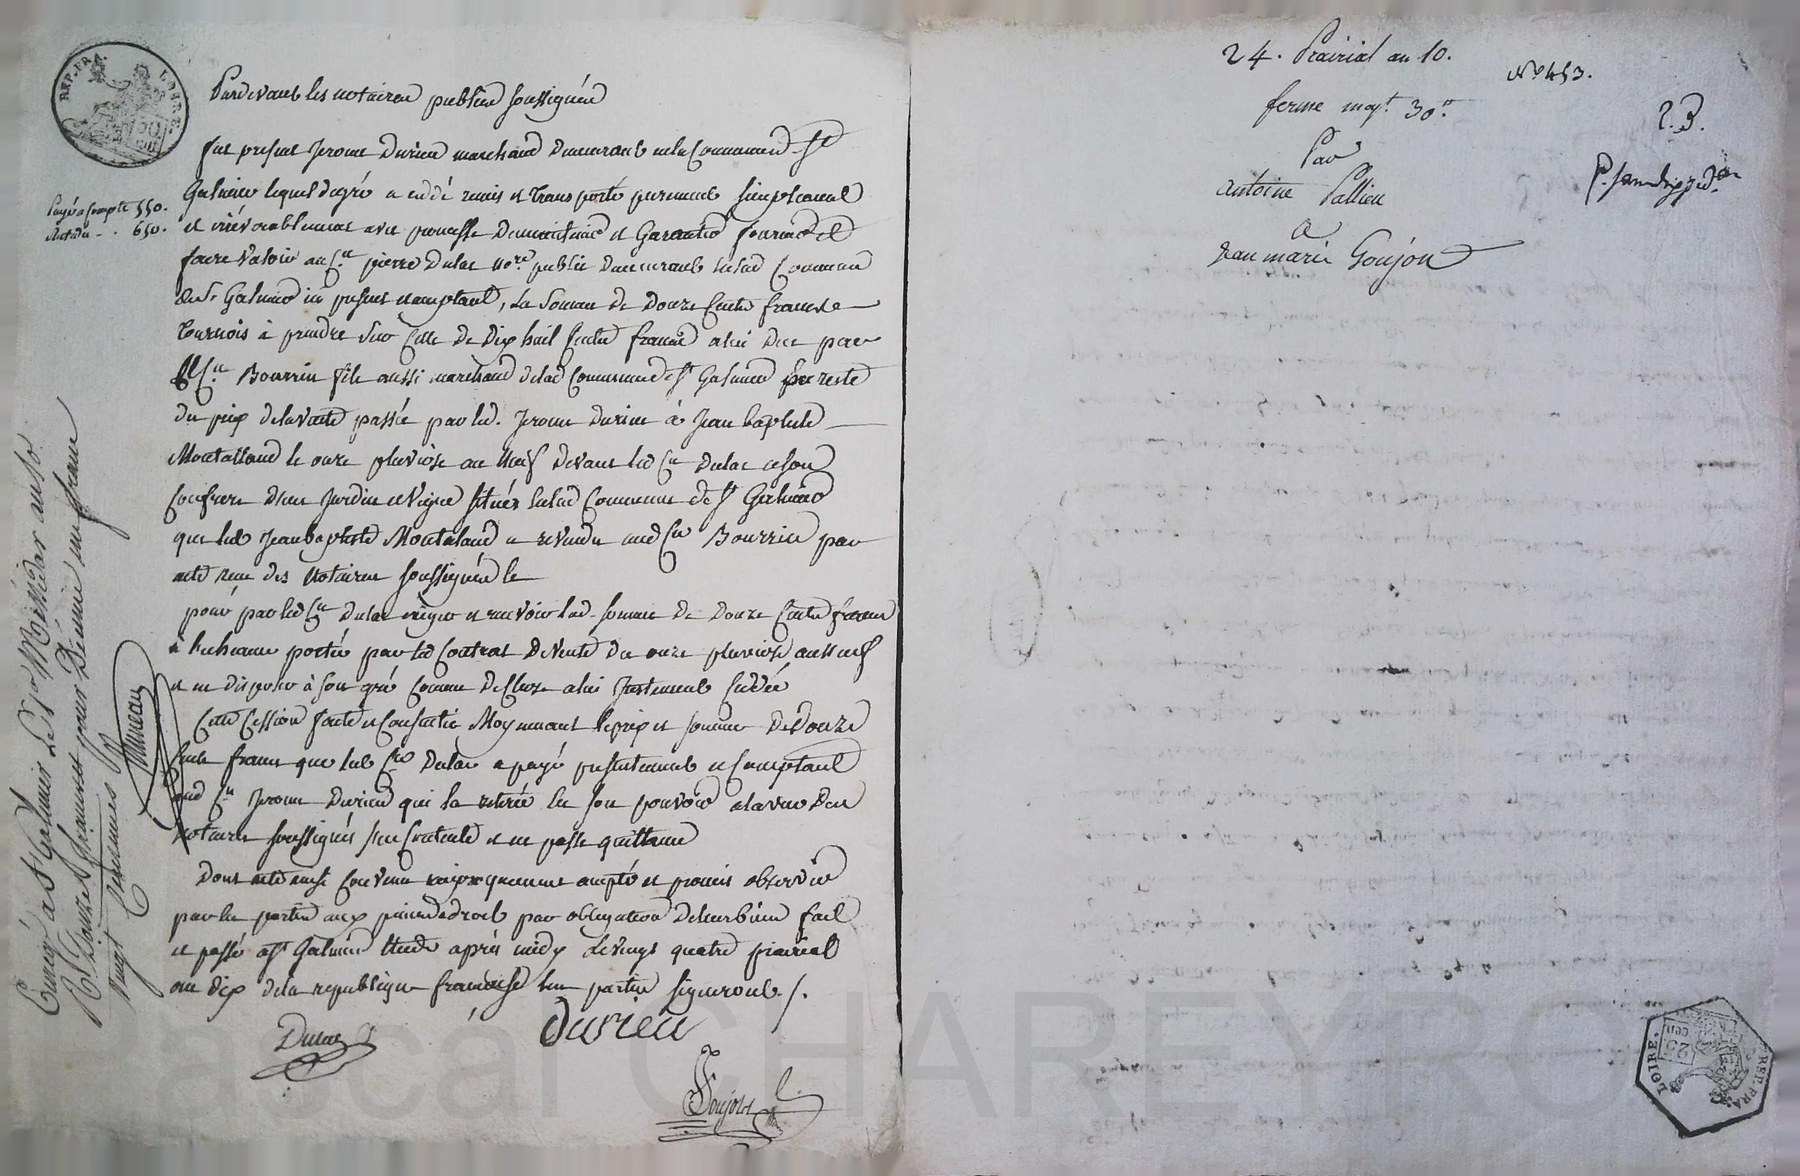 REP. FRA. LOIRE.
Pardevant les notaires publics soussignés
fut present Jerome Durieu marchand demeurant en la Commune de St
Galmier lequel de gré a ceddé remis et transporté purement simplement
et irrévocablement avec promesse de maintenir et Garantir fournir et
faire valoir au Cn. pierre Dulac nore. public demeurant en lad Commune
de St Galmier ici present et acceptant, la Somme de Douze Cents francs
tournois à prendre sur Celle de Dix huit Cents francs a lui due par
le Cn. Bourrin fils aussi marchand de lad Commune de St Galmier pour reste
du prix de la vente passée par led. Jerome durieu à Jean baptiste
Montalland le onze pluviose an neuf devant led Cn Dulac et son
Confrere d'un Jardin et Vigne situés en lad Commune de St Galmier
que led Jean baptiste Montaland a revendu aud Cn Bourrin par
acte reçu des Notaires soussignés le
pour par led Cn Dulac exiger et recevoir lad. somme de Douze Cents francs
à l'echeance portée par led Contrat de Vente du onze pluviose an neuf
et en disposer à son gré Comme de Chose a lui Justement Ceddée
Cette Cession faite et Consentie Moyennant le prix et somme De Douze
Cents francs que led Cn Dulac a payé presentement et Comptant
aud Cn Jerome Durieu qui la retirée en son pouvoir a la vue des
notaires soussignés s'en Contente et en passe quittance
Dont acte ainsi Convenu reciproquement accepté et promis observer
par les parties aux peines de droit par obligation de leurs biens fait
et passé a St Galmier Etude après midy le vingt quatre prairial
an dix de la republique française les parties signeront ./.
Dulac
durieu
Goujon
Payé a Compte 550.
Restdu - . 650.
Enregé a St Galmier Le 1er Messidor an 10.
Reçu Douze francs pour Dixieme un franc
vingt Centimes
24. Prairial an 10.
No 453.
ferme moyt. 30.
Par
antoine Pallieu
a
Jean marie Goujon
2. B.
LOIRE. REP. FRA.
25 cen
Pascal CHAREYRON